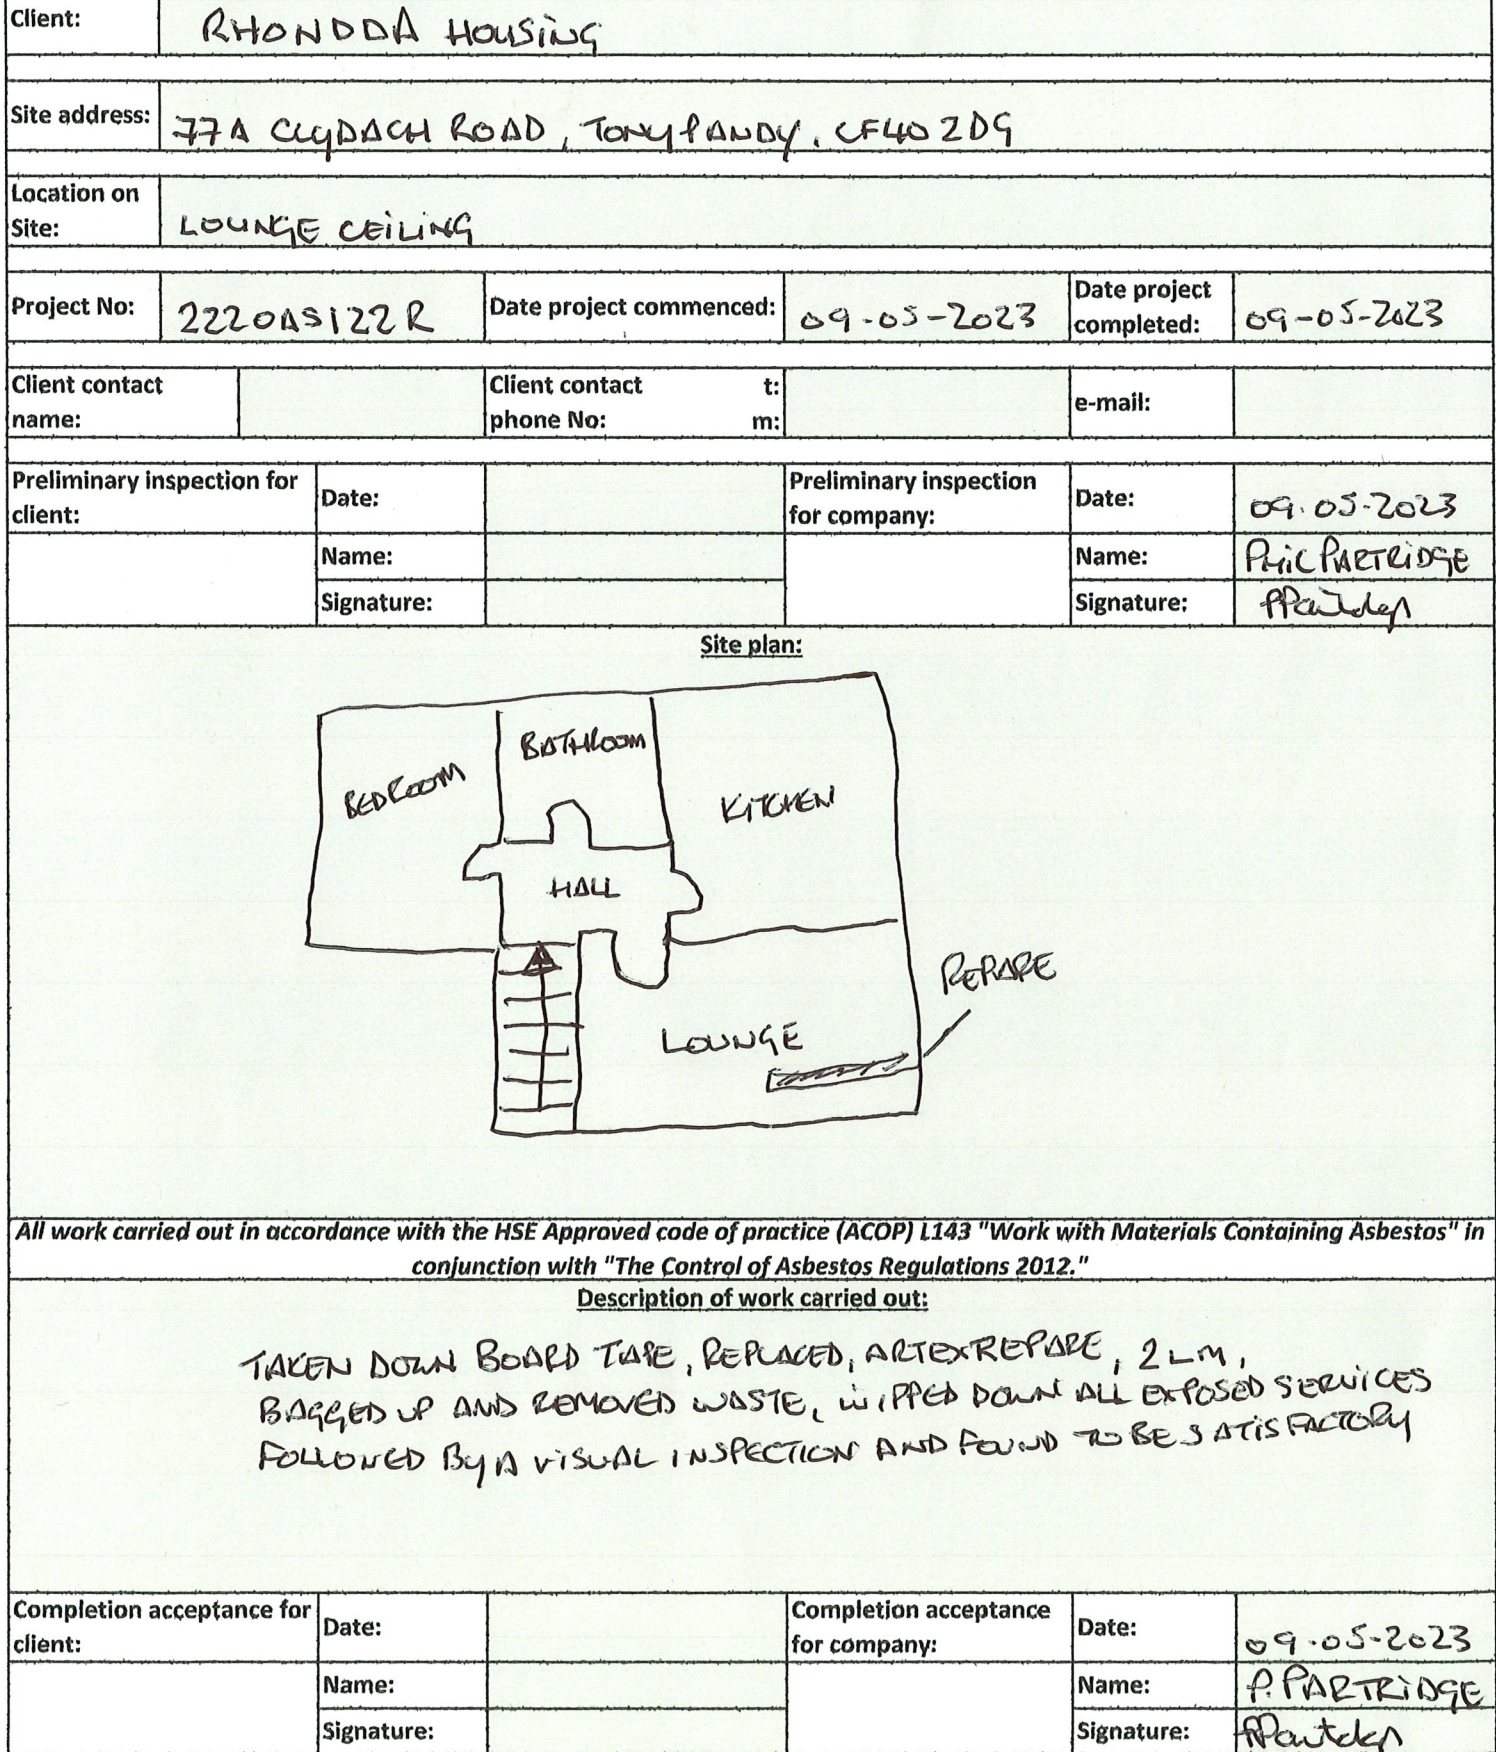 Client: RHONDDA HOUSING
Site address: 77A CLYDACH ROAD, TONYPANDY. CF40 2DG
Location on
Site: LOUNGE CEILING
Project No: 2220AS122R Date project commenced: 09-05-2023 Date project
completed: 09-05-2023
Client contact
name:
Client contact t:
phone No: m:
e-mail:
Preliminary inspection for
client:
Date:
Name:
Signature:
Preliminary inspection
for company:
Date: 09.05.2023
Name: PHIL PARTRIDGE
Signature:
Site plan:
BATHROOM
BEDROOM
KITCHEN
HALL
REPARE
LOUNGE
All work carried out in accordance with the HSE Approved code of practice (ACOP) L143 "Work with Materials Containing Asbestos" in
conjunction with "The Control of Asbestos Regulations 2012."
Description of work carried out:
TAKEN DOWN BOARD TAPE, REPLACED, ARTEX REPARE, 2LM,
BAGGED UP AND REMOVED WASTE, WIPPED DOWN ALL EXPOSED SERVICES
FOLLOWED BY A VISUAL INSPECTION AND FOUND TO BE SATISFACTORY
Completion acceptance for
client:
Date:
Name:
Signature:
Completion acceptance
for company:
Date: 09.05-2023
Name: P. PARTRIDGE
Signature: